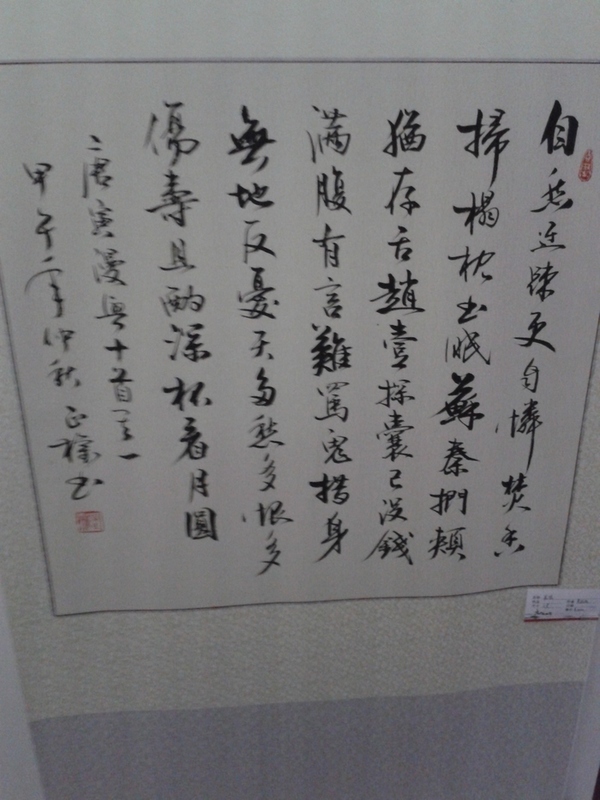 自怨迂疎更自憐焚香
掃榻枕書眠蘇秦捫頰
猶存舌趙壹探囊已沒錢
滿腹有言難罵鬼措身
無地反憂天多愁多恨多
傷壽且酌深杯看月圓
唐寅漫興十首之一
甲午年仲秋正樑书